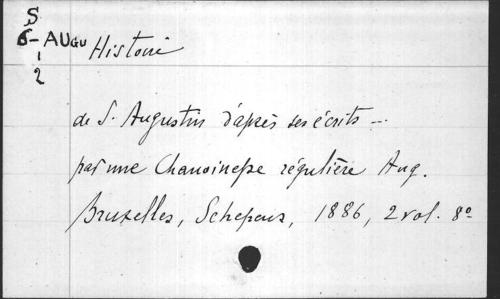 S
6-AUGU
1
2
Histoire
de S. Augustin d'après ses écrits ...
par une Chanoinesse régulière Aug.
Bruxelles, Schepens, 1886, 2 vol. 8º